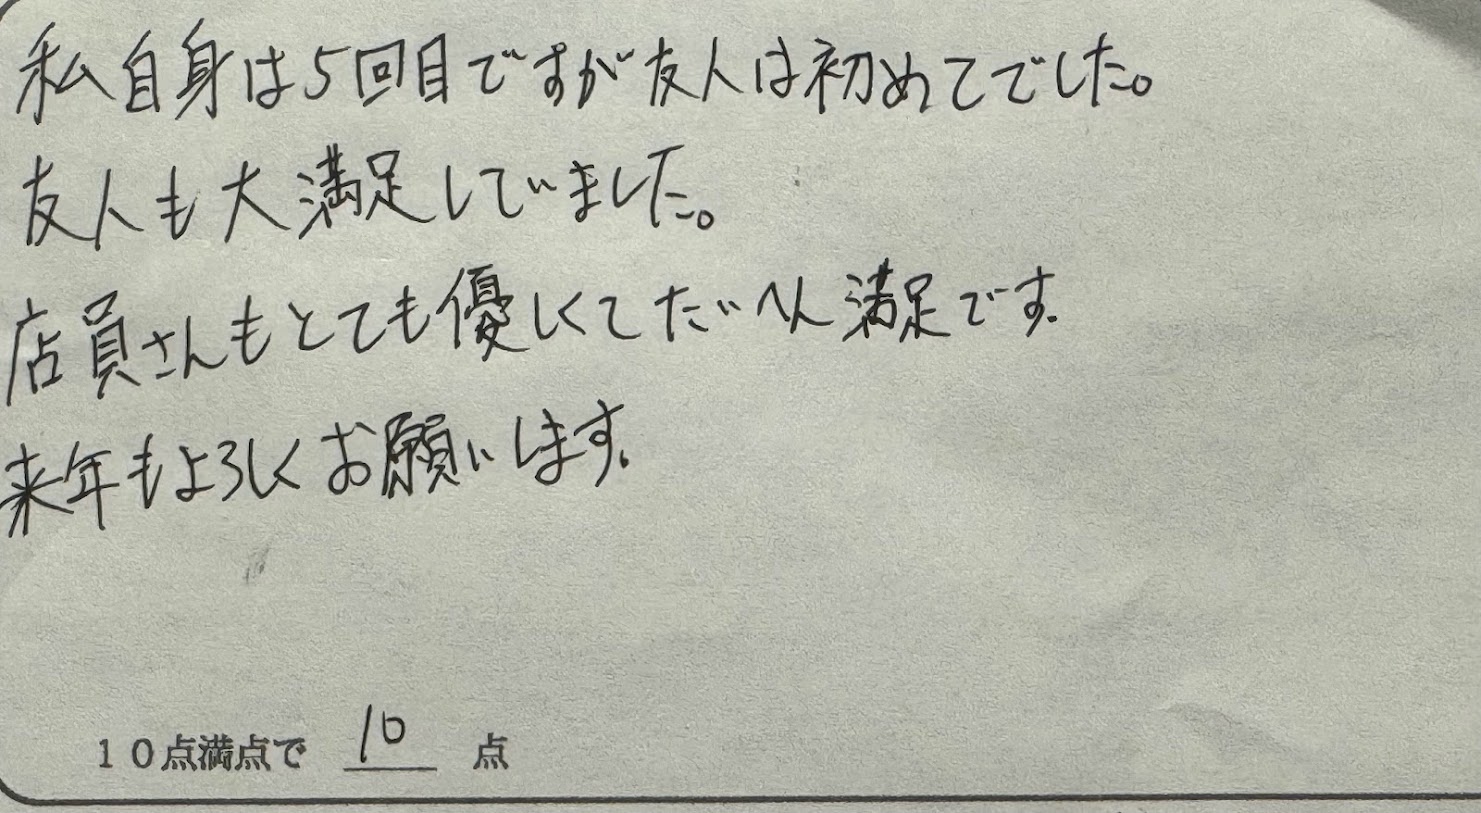 私自身は5回目ですが友人は初めてでした。
友人も大満足していました。
店員さんもとても優しくてたいへん満足です.
来年もよろしくお願いします.
10点満点で 10 点